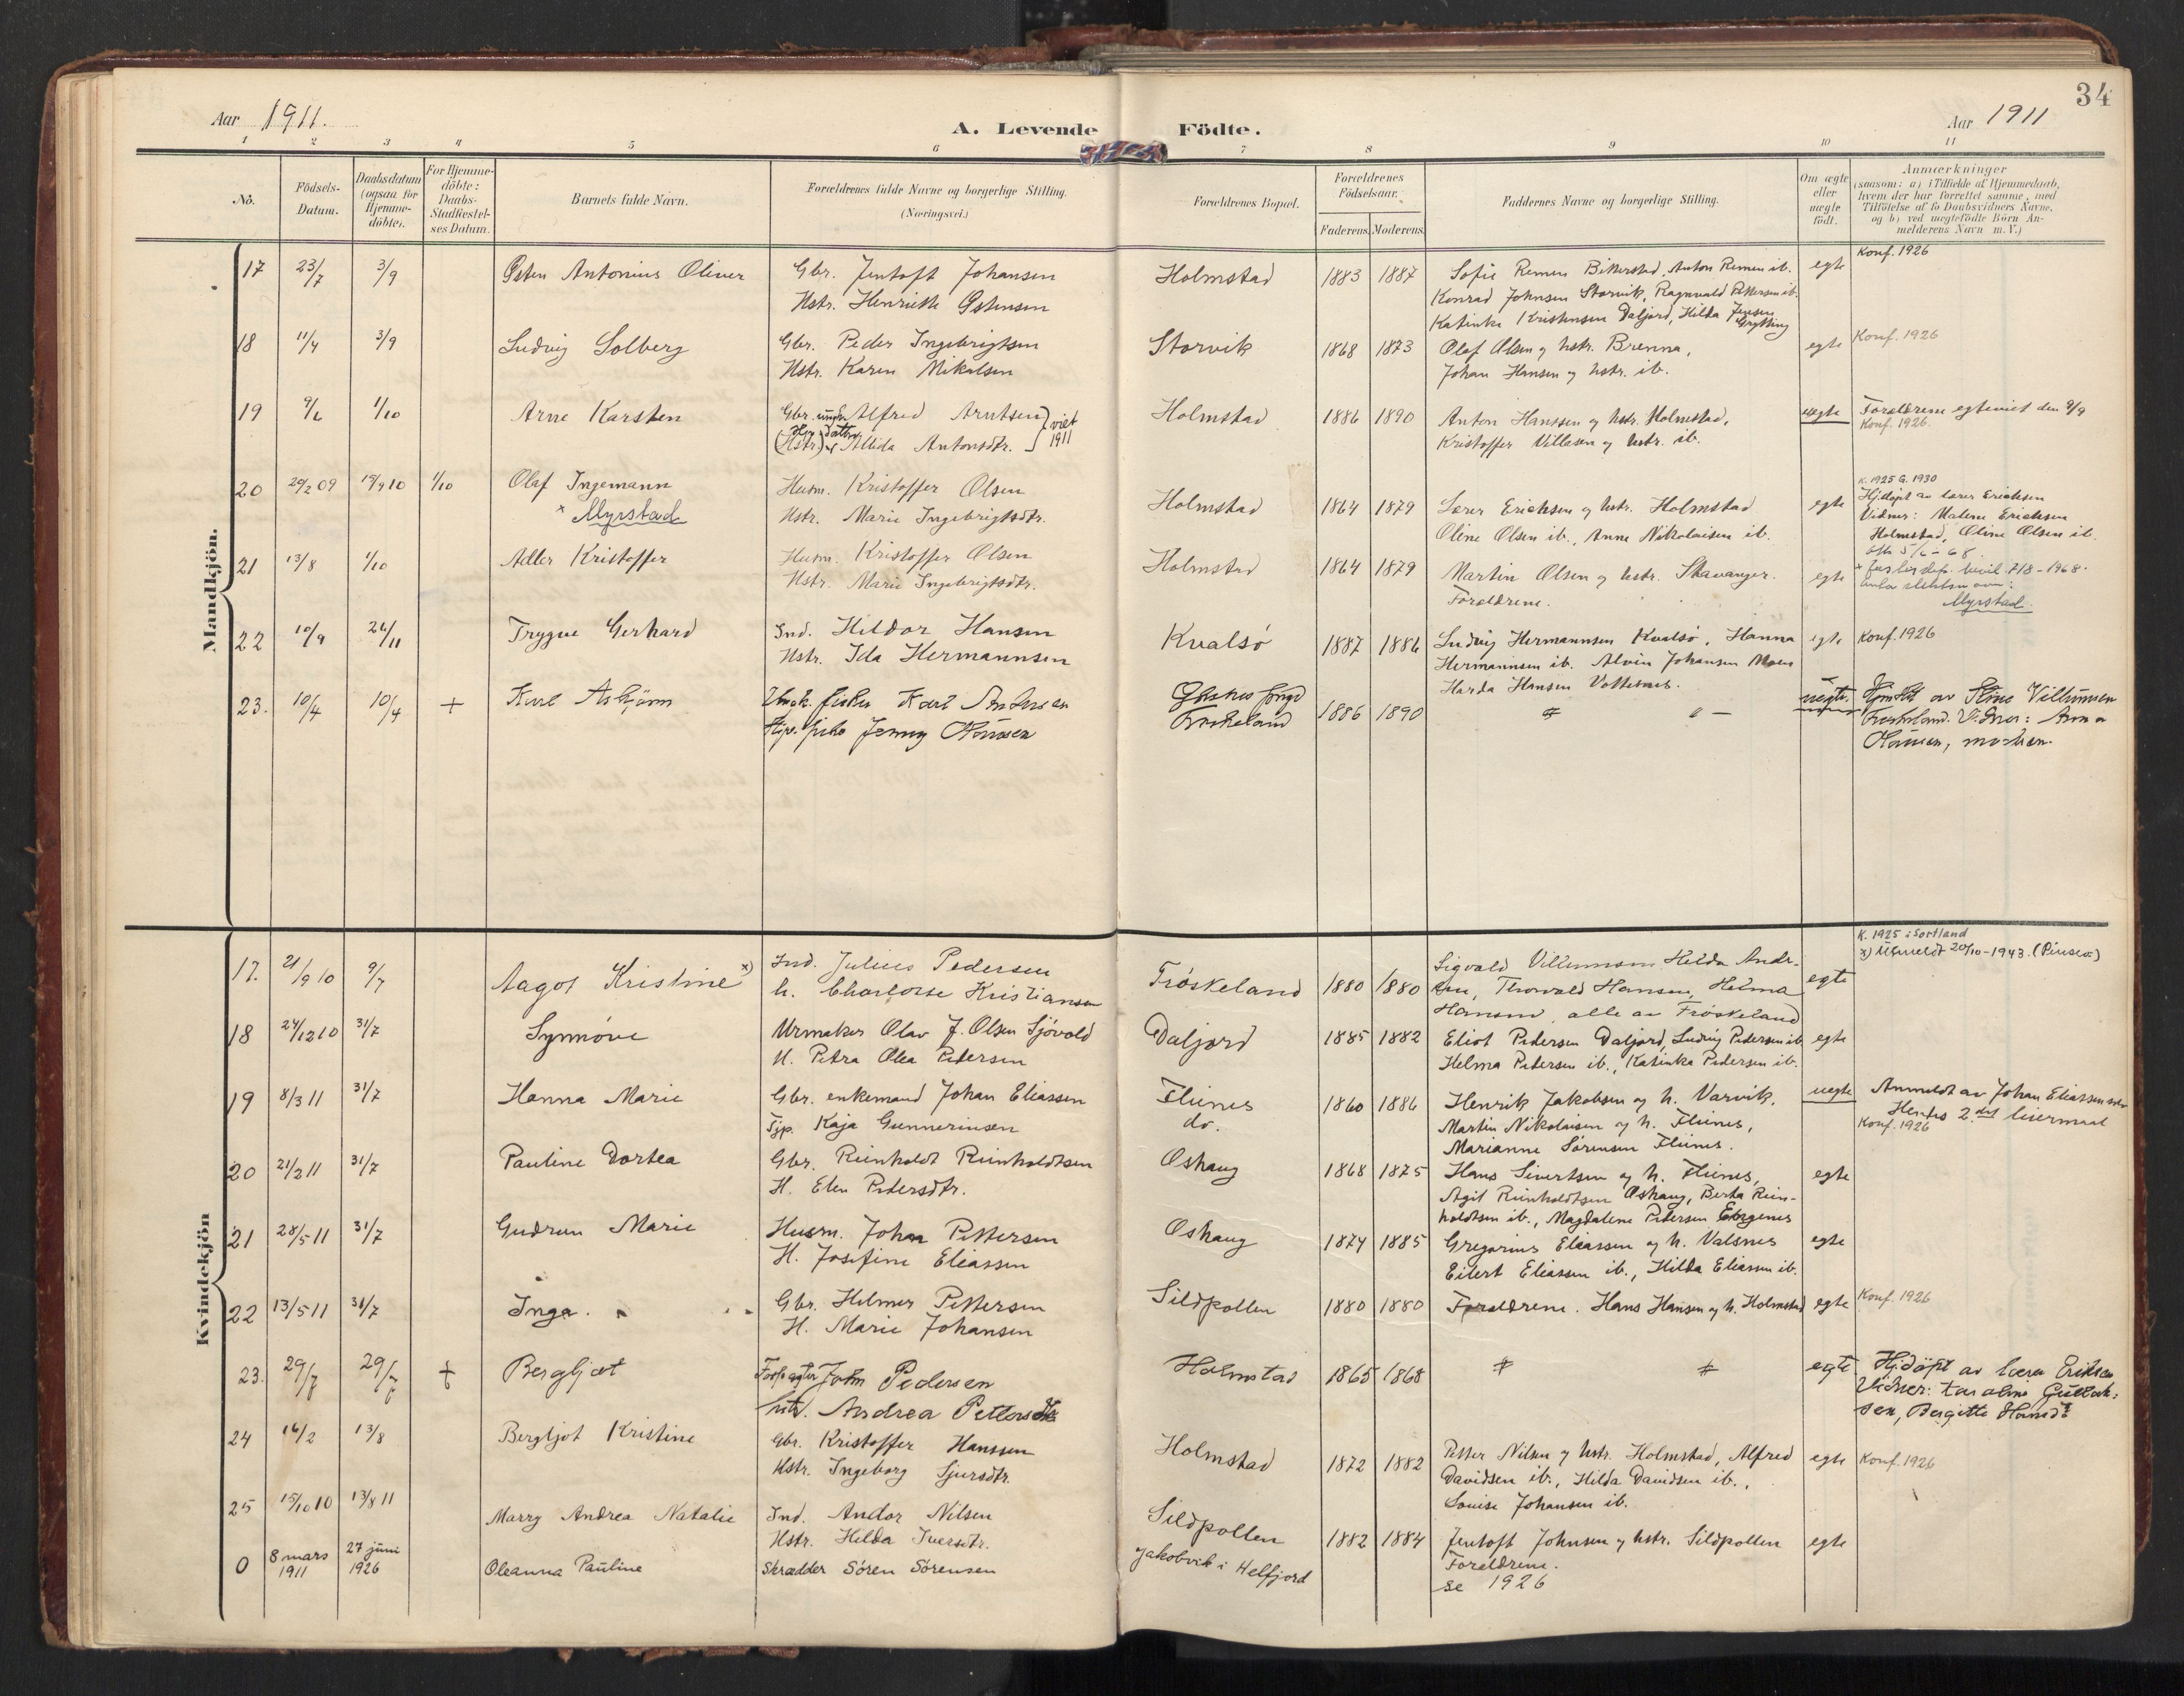 34
Aar 1911.
A. Levende Födte.
Aar 1911
1 2 3 4 5 6 7 8 9 10 11
No.
Födsels-Datum.
Daabsdatum (ogsaa for Hjemme-döbte).
For Hjemme-döbte: Daabs-Stadfæstel-ses Datum.
Barnets fulde Navn.
Forældrenes fulde Navne og borgerlige Stilling. (Næringsvei.)
Forældrenes Bopæl.
Forældrenes Födselsaar.
Faderens. Moderens.
Faddernes Navne og borgerlige Stilling.
Om ægte eller uægte födt.
Anmærkninger
(saasom: a) i Tilfælde af Hjemmedaab,
hvem der har forrettet samme, med
Tilföielse af to Daabsvidners Navne,
og b) ved uægtefödte Börn An-
melderens Navn m. V.)
Mandkjön.
17 23/7 3/9 Østen Antonius Oliver Gbr. Jentoft Johansen Holmstad 1883 1887 Sofie Remen Bitterstad, Anton Remen ib. egte Konf. 1926
Hstr. Henriette Østensen Konrad Johnsen Storvik, Ragnvald Pettersen ib.
Katinka Kristensen Daljord, Hilda Jensen Grytting
18 11/4 3/9 Ludvig Solberg Gbr. Peder Ingebrigtsen Storvik 1868 1873 Olaf Olsen og hstr. Brenna, egte Konf. 1926
Hstr. Karen Mikalsen Johan Hansen og hstr. ib.
19 9/6 1/10 Arne Karsten Gbr. ungk. Alfred Arntsen } viet 1911 Holmstad 1886 1890 Anton Hanssen og hstr. Holmstad, uegte Forældrene egteviet den 9/9
(Hstr) Alida Antonsdtr. Kristoffer Villasen og hstr. ib. Konf. 1926.
20 20/2 09 18/9 10 1/10 Olaf Ingemann Husm. Kristoffer Olsen Holmstad 1864 1879 Lærer Erichsen og hstr. Holmstad egte K. 1925 G. 1930
× Myrstad Hstr. Marie Ingebrigtsdtr. Oline Olsen ib., Anne Nikolaisen ib. Hj.døpt av lærer Erichsen
Vidner: Malene Erichsen
Holmstad, Oline Olsen ib.
21 13/8 1/10 Adler Kristoffer Husm. Kristoffer Olsen Holmstad 1864 1879 Martin Olsen og hstr. Skavanger. egte
Hstr. Marie Ingebrigtsdtr. Forældrene. 5/6-68.
bevil. 7/8-1968.
Myrstad.
22 10/9 26/11 Trygve Gerhard Ind. Hildor Hansen Kvalsø 1887 1886 Ludvig Hermannsen Kvalsø, Hanna egte Konf. 1926
Hstr. Ida Hermannsen Hermannsen ib. Alvin Johansen Moen
Harda Hansen
23. 10/4 10/4 + Karl Asbjörn Umk. fisker Karl Frøskeland 1886 1890 uegte. Hjemdöbt av Stine Villumsen
Jenny Hansen Frøskeland. Vidner: Anna
Hansen, moderen.
Kvindekjön
K. 1925 i Sortland
17. 21/9 10 9/7 Aagot Kristine ×) Ind. Julius Pedersen Frøskeland 1880 1880 Sigvald Villumsen Hilda Andr- egte ×) Utmeldt 20/10-1943. (Pinsev.)
h. Charlotte Kristiansen sen, Thorvald Hansen, Helma
Hansen, alle av Frøskeland
18 24/12 10 31/7 Synnøve Urmaker Olav J. Olsen Sjövold Daljord 1885 1882 Eliot Pedersen Daljord, Ludvig Pedersen ib. egte
H. Petra Olea Petersen Helma Petersen ib., Katinka Pedersen ib.
19 8/3 11 31/7 Hanna Marie Gbr. enkemand Johan Eliassen Flines 1860 1886 Henrik Jakobsen og h. Varvik, uegte Anmeldt av Johan Eliassen selv
Tjp. Kaja Gunneriusen do. Martin Nikolaisen og h. Flines, Hendes 2det leiermaal
Marianne Sørensen Flines. Konf. 1926
20 21/2 11 31/7 Pauline Dortea Gbr. Reinholdt Reinholdtsen Oshaug 1868 1875 Hans Sivertsen og h. Flines, egte
H. Elen Petersdtr. Agit Reinholdtsen Oshaug, Berta Rein-
holdtsen ib., Magdalene Petersen
21 28/5 11 31/7 Gudrun Marie Husm. Johan Pettersen Oshaug 1874 1885 Gregorius Eliassen og h. Valsnes egte
H. Josefine Eliassen Eilert Eliassen ib., Hilda Eliassen ib.
22 13/5 11 31/7 Inga. Gbr. Helmer Pettersen Sildpollen 1880 1880 Forældrene. Hans Hansen og h. Holmstad egte Konf. 1926
H. Marie Johansen
23. 29/7 29/7 + Bergljot Forpagter John Pedersen Holmstad 1865 1868 egte Hj.døpt av lærer Eriksen
hstr. Andrea Vidner: Karoline Gullak-
sen, Bergitte Hansdtr
24 16/2 13/8 Bergljot Kristine Gbr. Kristoffer Hanssen Holmstad 1872 1882 Petter Nilsen og hstr. Holmstad, Alfred egte Konf. 1926
Hstr. Ingeborg Sjursdtr. Davidsen ib., Hilda Davidsen ib.,
Louise Johansen ib.
25 15/10 10 13/8 11 Marry Andrea Natalie Ind. Andor Nilsen Sildpollen 1882 1884 Jentoft Johnsen og hstr. Sildpollen egte
Hstr. Hilda Iversdtr. Forældrene.
0 8 mars 1911 27 juni 1926 Oleanna Pauline Skrædder Sören Sörensen Jakobvik i Helfjord se 1926